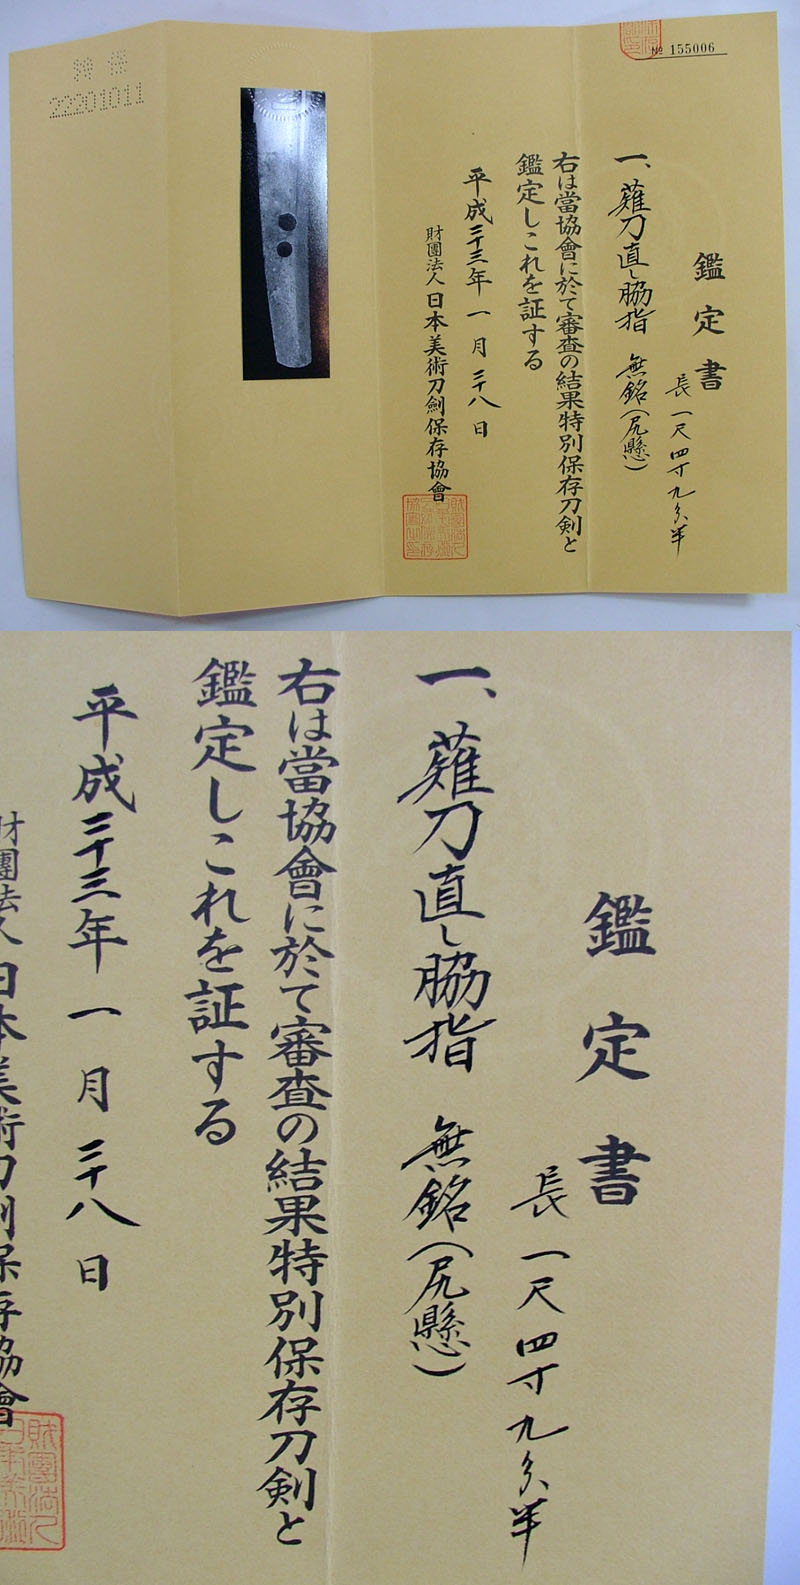 № 155006
鑑定書
長一尺四寸九分半
一、薙刀直し脇指 無銘(尻懸)
右は當協會に於て審査の結果特別保存刀剣と
鑑定しこれを証する
平成二十三年一月二十八日
財團法人日本美術刀劍保存協會
特保
22201011
鑑定書
長一尺四寸九分半
一、薙刀直し脇指 無銘(尻懸)
右は當協會に於て審査の結果特別保存刀剣と
鑑定しこれを証する
平成二十三年一月二十八日
財團法人日本美術刀劍保存協會